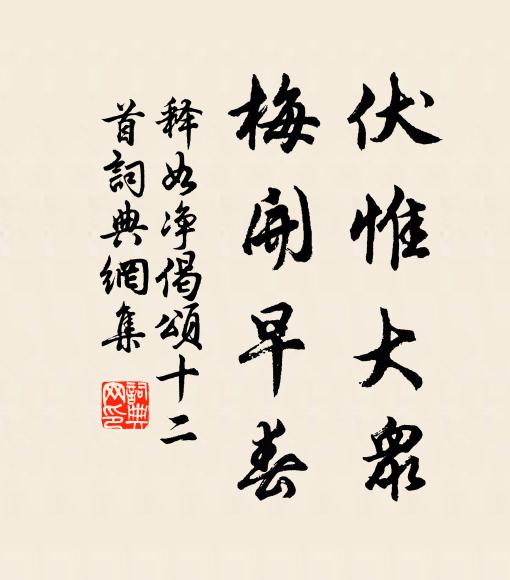 伏惟大眾
梅開早春
释如净偈頌十二
首詞典網集
詞典網印